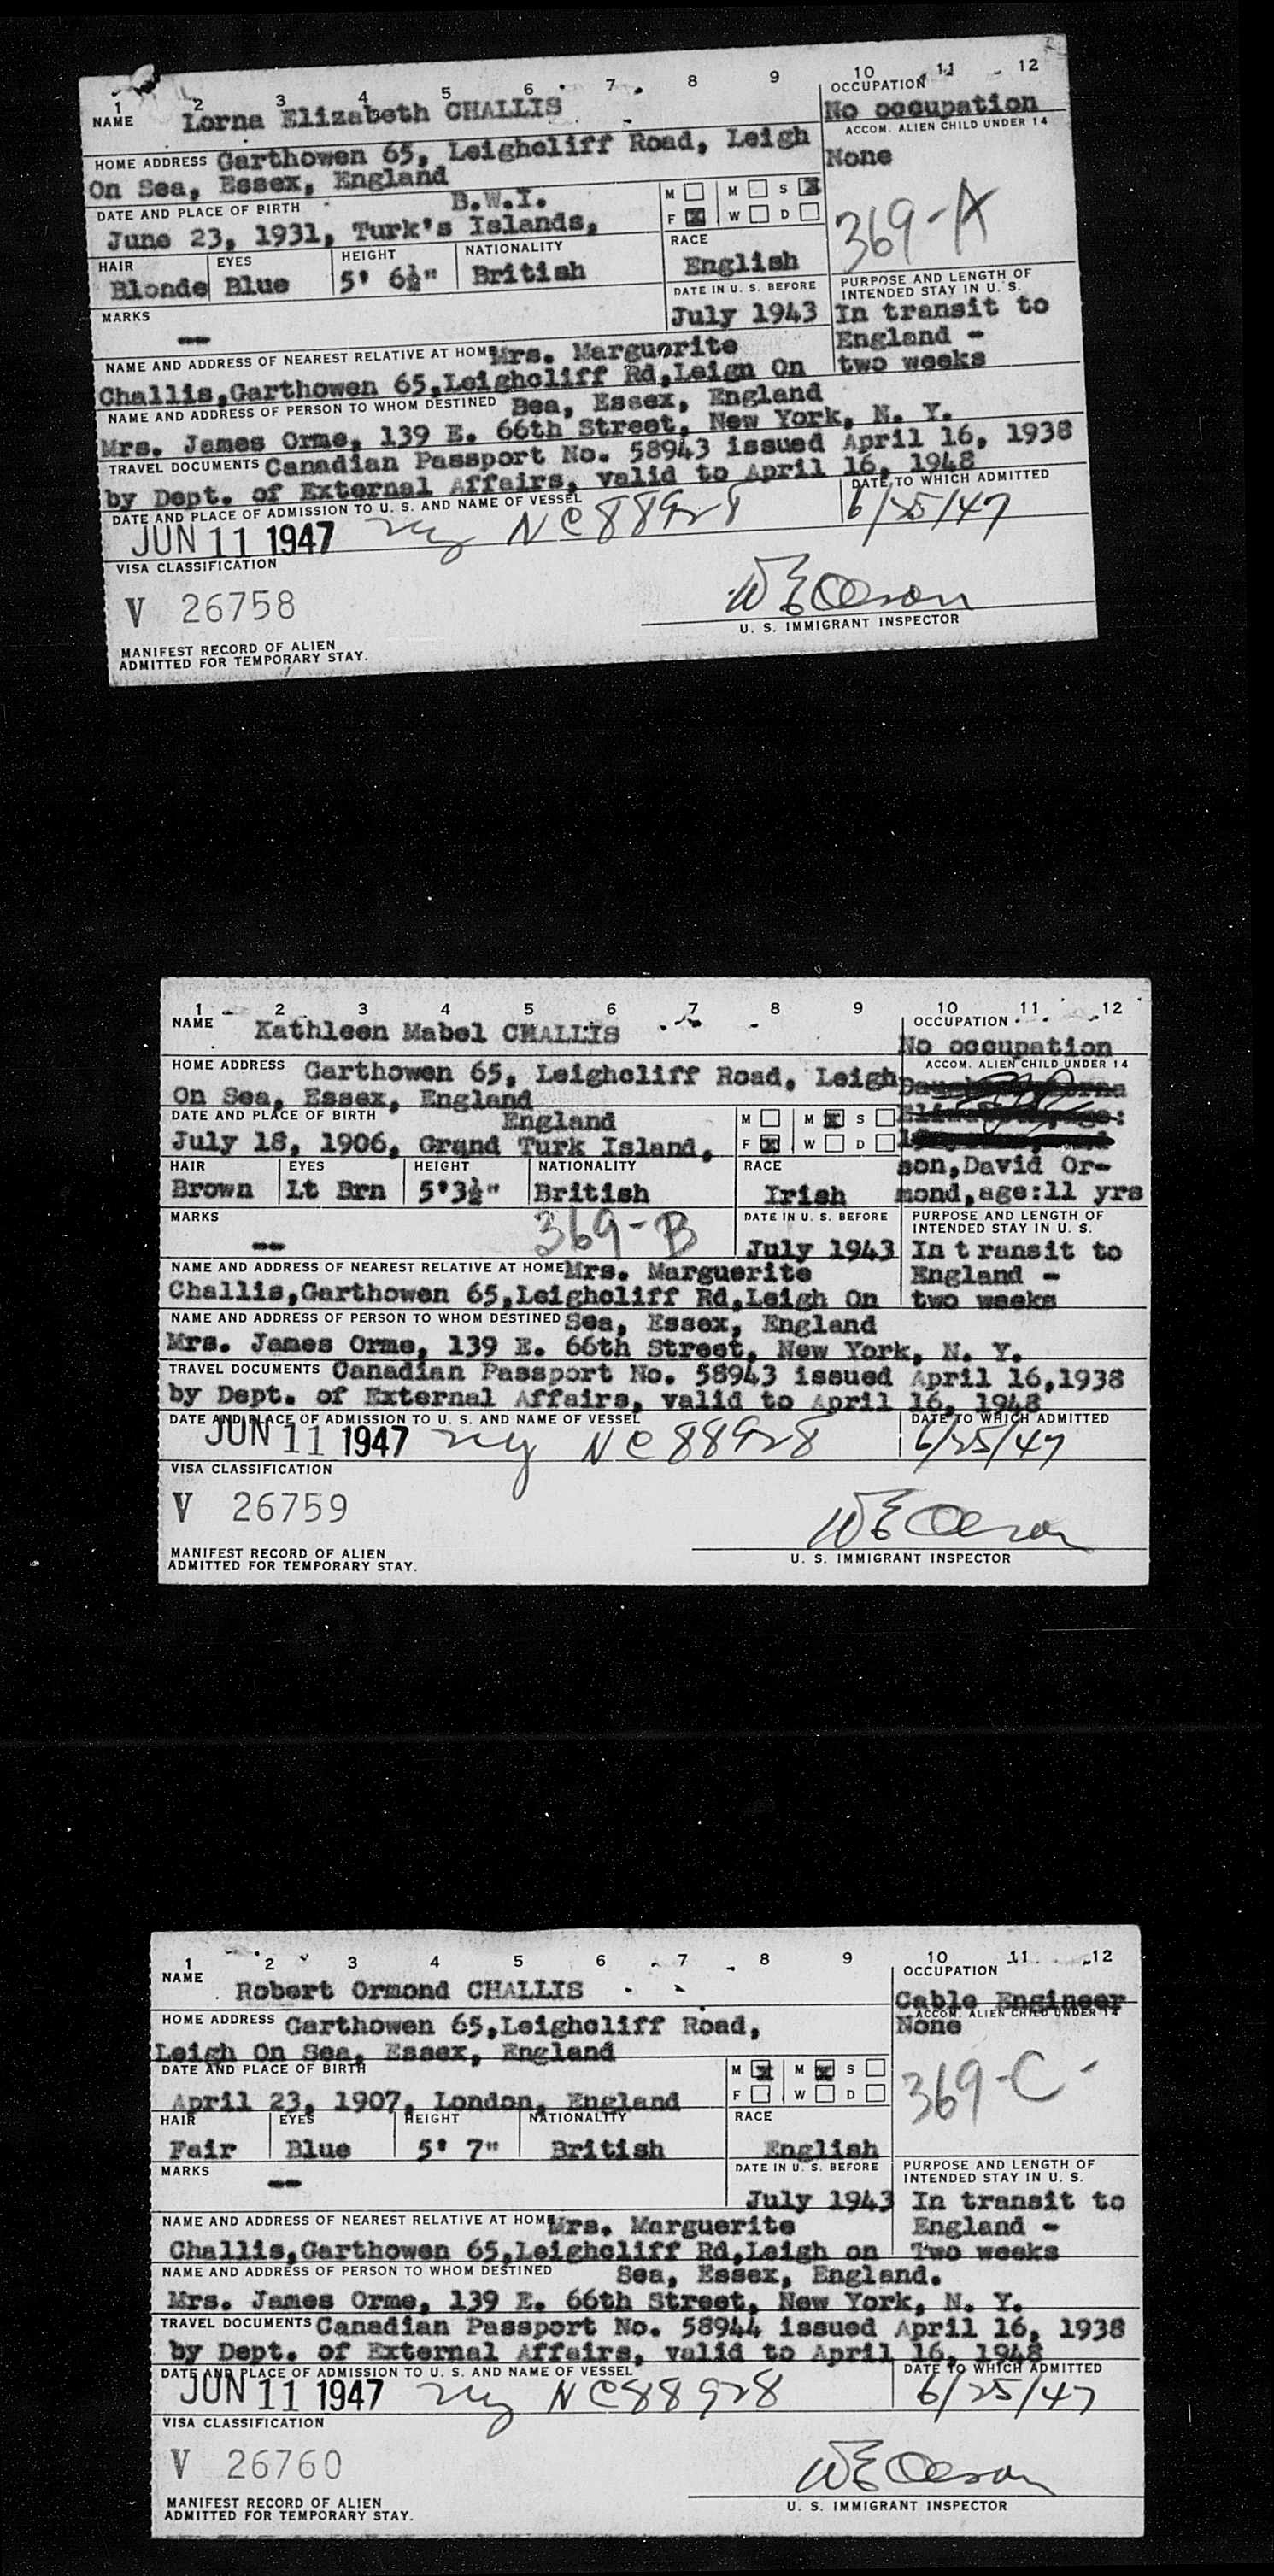 1 2 3 4 5 6 7 8 9 10 11 12
NAME Lorna Elizabeth CHALLIS
OCCUPATION
No occupation
HOME ADDRESS Garthowen 65, Leighcliff Road, Leigh
On Sea, Essex, England
ACCOM. ALIEN CHILD UNDER 14
None
DATE AND PLACE OF BIRTH B.W.I.
June 23, 1931, Turk's Islands,
M M S X
F X W D
369-A
HAIR EYES HEIGHT NATIONALITY RACE
Blonde Blue 5' 6½" British English
MARKS
--
DATE IN U. S. BEFORE
July 1943
PURPOSE AND LENGTH OF
INTENDED STAY IN U. S.
In transit to
England -
two weeks
NAME AND ADDRESS OF NEAREST RELATIVE AT HOME Mrs. Marguerite
Challis,Garthowen 65,Leighcliff Rd,Leign On
NAME AND ADDRESS OF PERSON TO WHOM DESTINED Sea, Essex, England
Mrs. James Orme, 139 E. 66th Street, New York, N. Y.
TRAVEL DOCUMENTS Canadian Passport No. 58943 issued April 16, 1938
by Dept. of External Affairs, valid to April 16, 1948
DATE AND PLACE OF ADMISSION TO U. S. AND NAME OF VESSEL DATE TO WHICH ADMITTED
JUN 11 1947 ny NC88928 6/25/47
VISA CLASSIFICATION
V 26758
W E Olson
U. S. IMMIGRANT INSPECTOR
MANIFEST RECORD OF ALIEN
ADMITTED FOR TEMPORARY STAY.
1 2 3 4 5 6 7 8 9 10 11 12
NAME Kathleen Mabel CHALLIS
OCCUPATION
No occupation
HOME ADDRESS Garthowen 65, Leighcliff Road, Leigh
On Sea, Essex, England
ACCOM. ALIEN CHILD UNDER 14
son,David Or-
mond,age:11 yrs
DATE AND PLACE OF BIRTH England
July 18, 1906, Grand Turk Island,
M M X S
F X W D
HAIR EYES HEIGHT NATIONALITY RACE
Brown Lt Brn 5'3½" British Irish
MARKS
-- 369-B
DATE IN U. S. BEFORE
July 1943
PURPOSE AND LENGTH OF
INTENDED STAY IN U. S.
In transit to
England -
two weeks
NAME AND ADDRESS OF NEAREST RELATIVE AT HOME Mrs. Marguerite
Challis,Garthowen 65,Leighcliff Rd,Leigh On
NAME AND ADDRESS OF PERSON TO WHOM DESTINED Sea, Essex, England
Mrs. James Orme, 139 E. 66th Street, New York, N. Y.
TRAVEL DOCUMENTS Canadian Passport No. 58943 issued April 16,1938
by Dept. of External Affairs, valid to April 16, 1948
DATE AND PLACE OF ADMISSION TO U. S. AND NAME OF VESSEL DATE TO WHICH ADMITTED
JUN 11 1947 ny NC88928 6/25/47
VISA CLASSIFICATION
V 26759
W E Olson
U. S. IMMIGRANT INSPECTOR
MANIFEST RECORD OF ALIEN
ADMITTED FOR TEMPORARY STAY.
1 2 3 4 5 6 7 8 9 10 11 12
NAME Robert Ormond CHALLIS
OCCUPATION
Cable Engineer
HOME ADDRESS Garthowen 65,Leighcliff Road,
Leigh On Sea, Essex, England
ACCOM. ALIEN CHILD UNDER 14
None
DATE AND PLACE OF BIRTH
April 23, 1907, London, England
M X M X S
F W D
369-C-
HAIR EYES HEIGHT NATIONALITY RACE
Fair Blue 5' 7" British English
MARKS
--
DATE IN U. S. BEFORE
July 1943
PURPOSE AND LENGTH OF
INTENDED STAY IN U. S.
In transit to
England -
Two weeks
NAME AND ADDRESS OF NEAREST RELATIVE AT HOME Mrs. Marguerite
Challis,Garthowen 65,Leighcliff Rd,Leigh on
NAME AND ADDRESS OF PERSON TO WHOM DESTINED Sea, Essex, England.
Mrs. James Orme, 139 E. 66th Street, New York, N. Y.
TRAVEL DOCUMENTS Canadian Passport No. 58944 issued April 16, 1938
by Dept. of External Affairs, valid to April 16, 1948
DATE AND PLACE OF ADMISSION TO U. S. AND NAME OF VESSEL DATE TO WHICH ADMITTED
JUN 11 1947 ny NC88928 6/25/47
VISA CLASSIFICATION
V 26760
W E Olson
U. S. IMMIGRANT INSPECTOR
MANIFEST RECORD OF ALIEN
ADMITTED FOR TEMPORARY STAY.